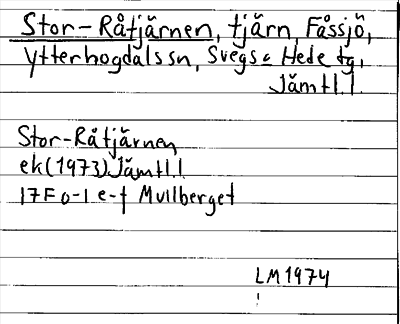 Stor-Råtjärnen, tjärn, Fåssjö,
Ytterhogdals sn, Svegs o Hede tg,
Jämtl.l.
Stor-Råtjärnen
ek(1973)Jämtl.l.
17F 0-1 e-f Mullberget
LM 1974